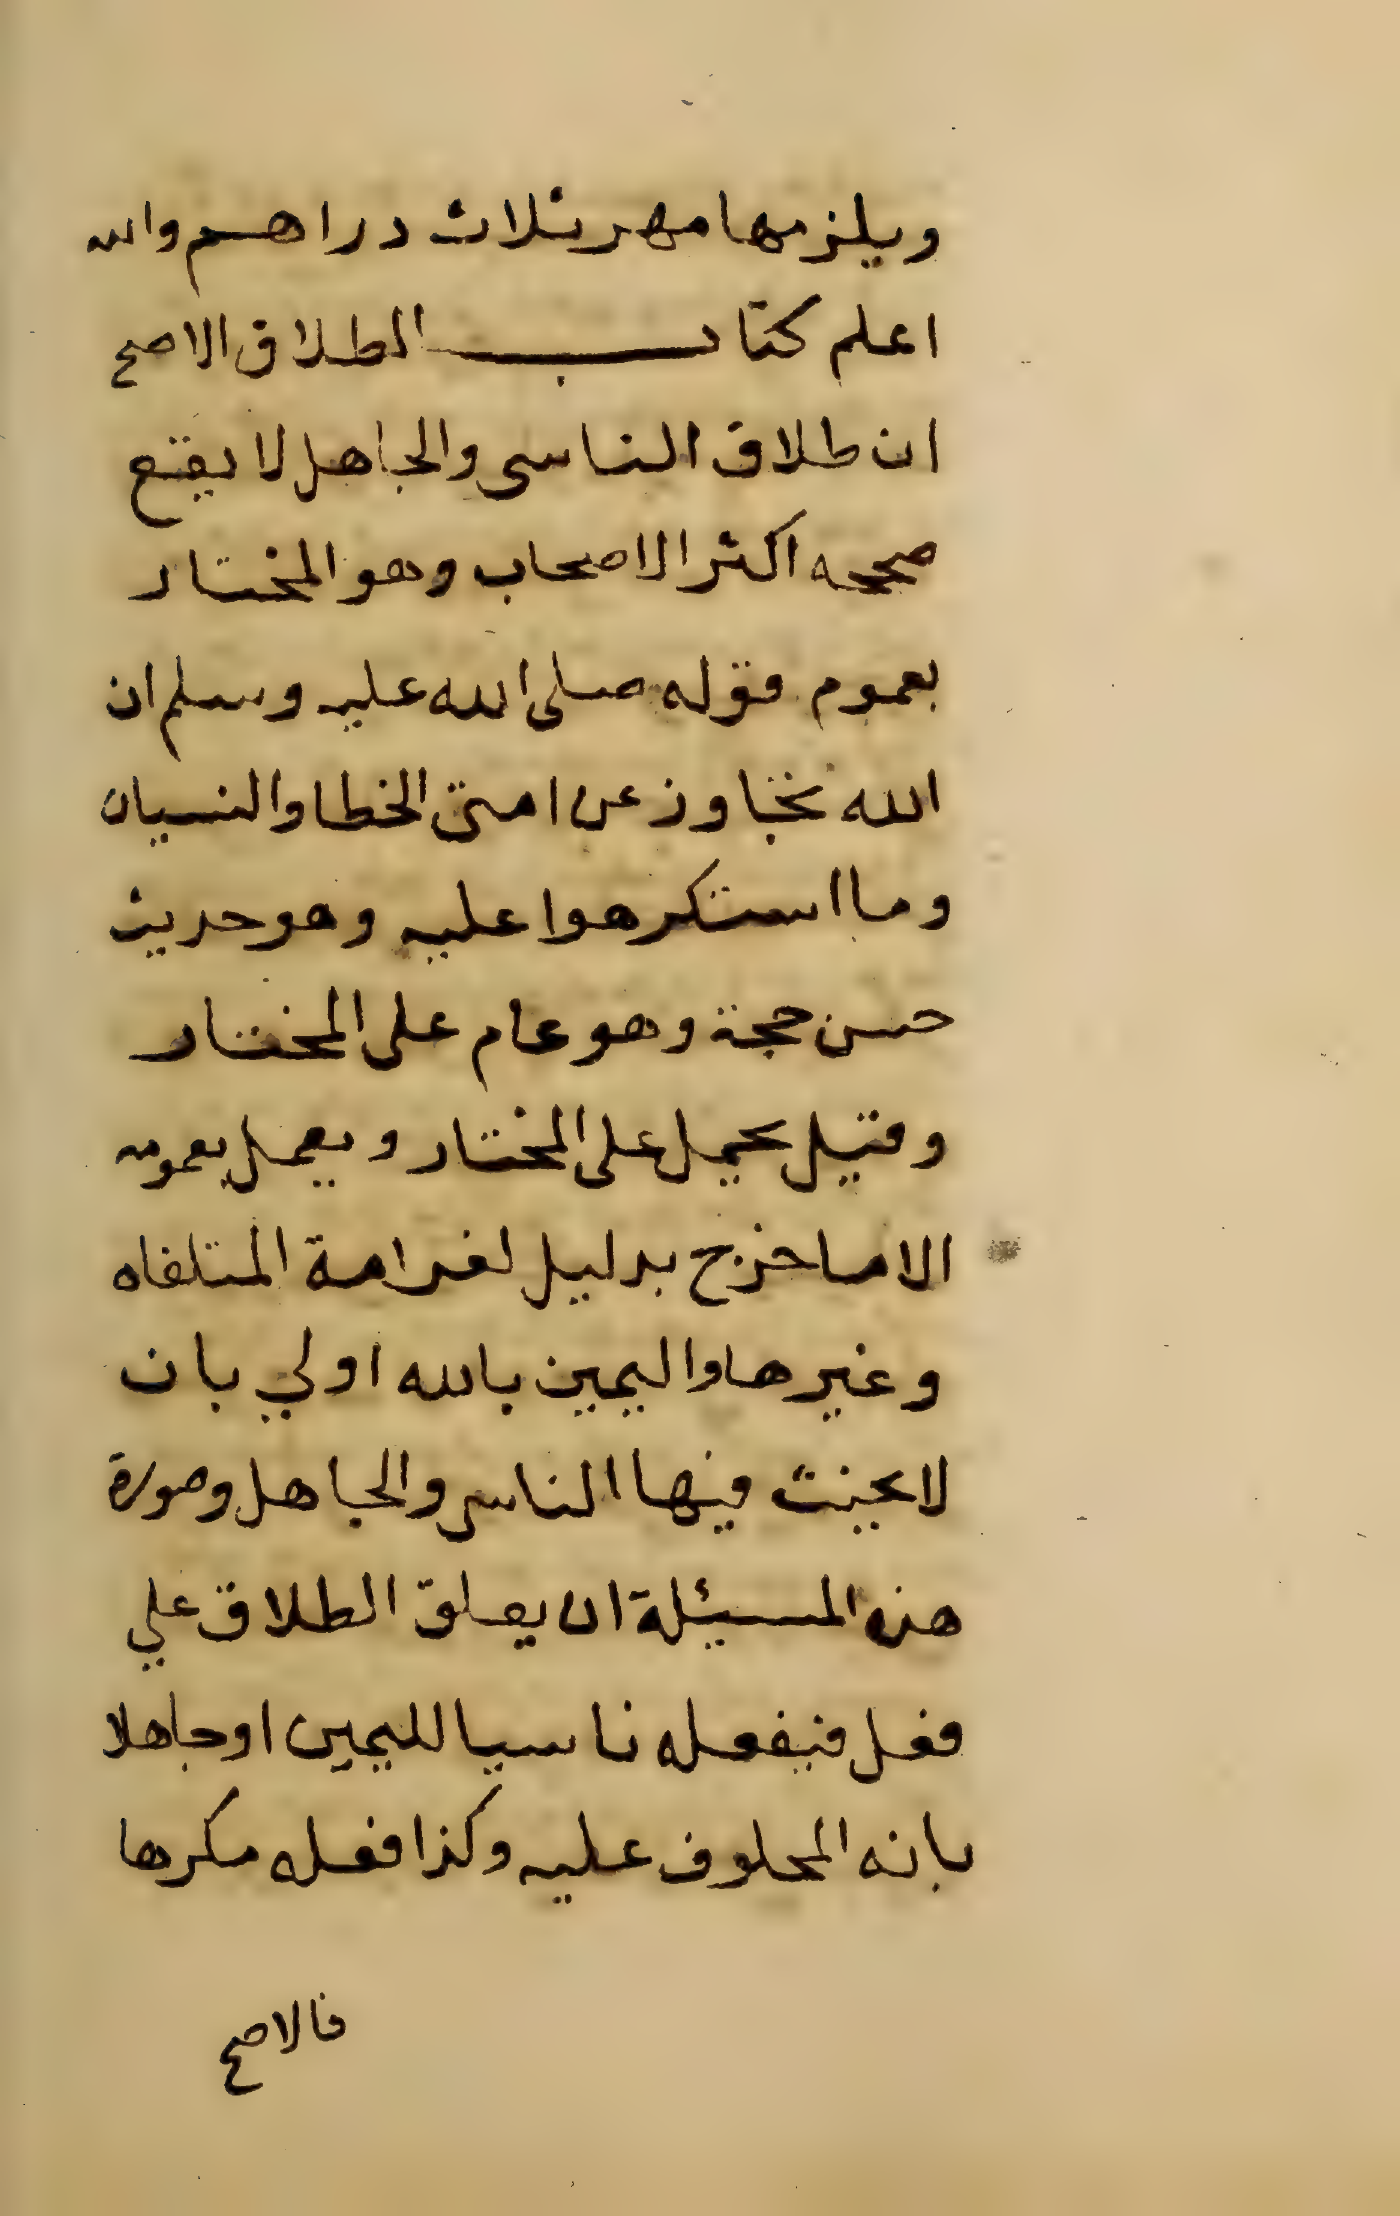 ويلزمها مهر ثلاث دراهم والله
اعلم كتاب الطلاق الاصح
ان طلاق الناسي والجاهل لا يقع
صححه اكثر الاصحاب وهو المختار
بعموم قوله صلى الله عليه وسلم ان
الله تجاوز عن امتي الخطا والنسيان
وما استكرهوا عليه وهو حديث
حسن حجة وهو عام على المختار
وقيل يحمل على المختار ويعمل بعمومه
الا ما خرج بدليل لغرامة المتلفاه
وغيرها واليمين بالله اولي بان
لا يحنث فيها الناسي والجاهل وصورة
هذه المسيئلة ان يعلق الطلاق علي
فعل فيفعله ناسيا لليمين او جاهلا
بانه المحلوف عليه وكذا فعله مكرها
فالاصح